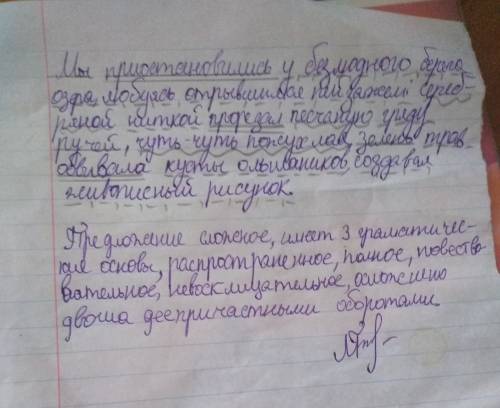 Мы приостановились у безмодного берега
озра, любуясь открывшимся пейзажем сереб-
ряной ниткой прорезал песчаную гряду
ручей, чуть-чуть пожухлая зелень трав
обвивала кусты ольшаников, создавая
живописный рисунок.
Предложение сложное, имеет 3 граматичес-
кие основы, распространенное, полное, повество-
вательное, невосклицательное, осложнено
двоша деепричастными оборотами